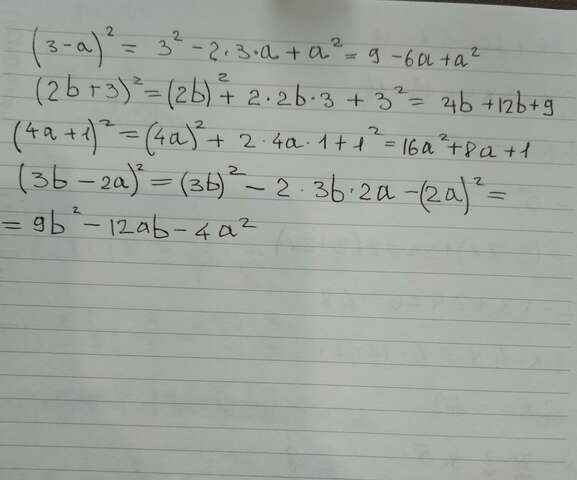 (3-a)² = 3² - 2·3·a + a² = 9 - 6a + a²
(2b+3)² = (2b)² + 2·2b·3 + 3² = 4b + 12b + 9
(4a+1)² = (4a)² + 2·4a·1 + 1² = 16a² + 8a + 1
(3b - 2a)² = (3b)² - 2·3b·2a - (2a)² =
= 9b² - 12ab - 4a²